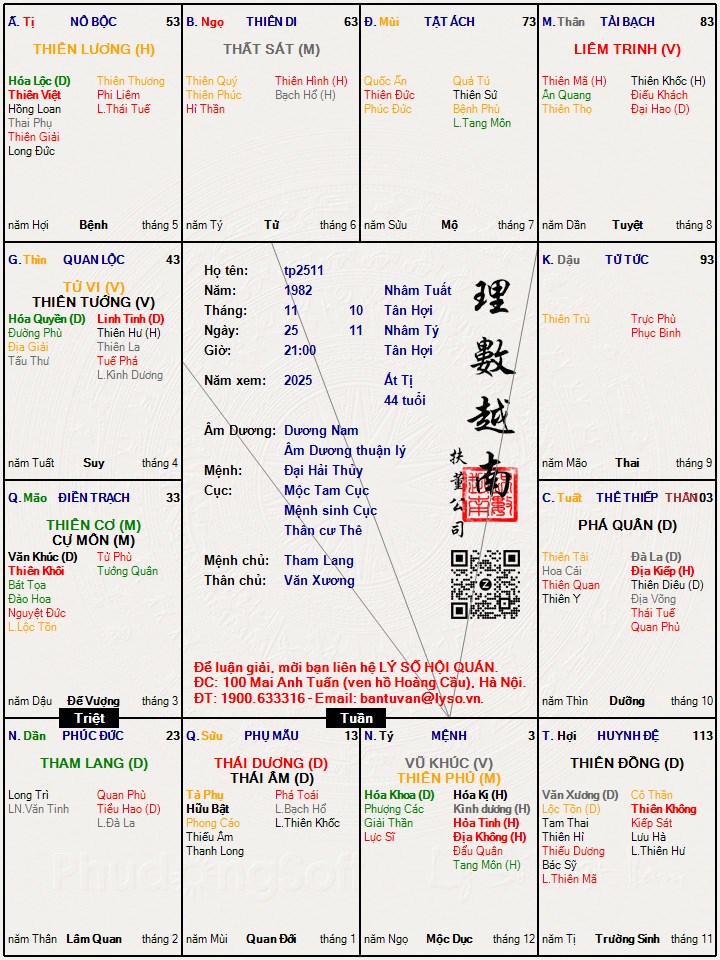 Ấ. Tị NÔ BỘC 53
THIÊN LƯƠNG (H)
Hóa Lộc (D) Thiên Thương
Thiên Việt Phi Liêm
Hồng Loan L.Thái Tuế
Thai Phụ
Thiên Giải
Long Đức
năm Hợi Bệnh tháng 5
B. Ngọ THIÊN DI 63
THẤT SÁT (M)
Thiên Quý Thiên Hình (H)
Thiên Phúc Bạch Hổ (H)
Hỉ Thần
năm Tý Tử tháng 6
Đ. Mùi TẬT ÁCH 73
Quốc Ấn Quả Tú
Thiên Đức Thiên Sứ
Phúc Đức Bệnh Phù
L.Tang Môn
năm Sửu Mộ tháng 7
M. Thân TÀI BẠCH 83
LIÊM TRINH (V)
Thiên Mã (H) Thiên Khốc (H)
Ân Quang Điếu Khách
Thiên Thọ Đại Hao (D)
năm Dần Tuyệt tháng 8
G. Thìn QUAN LỘC 43
TỬ VI (V)
THIÊN TƯỚNG (V)
Hóa Quyền (D) Linh Tinh (D)
Đường Phù Thiên Hư (H)
Địa Giải Thiên La
Tấu Thư Tuế Phá
L.Kình Dương
năm Tuất Suy tháng 4
Họ tên: tp2511
Năm: 1982 Nhâm Tuất
Tháng: 11 10 Tân Hợi
Ngày: 25 11 Nhâm Tý
Giờ: 21:00 Tân Hợi
Năm xem: 2025 Ất Tị
44 tuổi
Âm Dương: Dương Nam
Âm Dương thuận lý
Mệnh: Đại Hải Thủy
Cục: Mộc Tam Cục
Mệnh sinh Cục
Thân cư Thê
Mệnh chủ: Tham Lang
Thân chủ: Văn Xương
理數越南
扶董公司
Để luận giải, mời bạn liên hệ LÝ SỐ HỘI QUÁN.
ĐC: 100 Mai Anh Tuấn (ven hồ Hoàng Cầu), Hà Nội.
ĐT: 1900.633316 - Email: bantuvan@lyso.vn.
K. Dậu TỬ TỨC 93
Thiên Trù Trực Phù
Phục Binh
năm Mão Thai tháng 9
Q. Mão ĐIỀN TRẠCH 33
THIÊN CƠ (M)
CỰ MÔN (M)
Văn Khúc (D) Tử Phù
Thiên Khôi Tướng Quân
Bát Tọa
Đào Hoa
Nguyệt Đức
L.Lộc Tồn
năm Dậu Đế Vượng tháng 3
C. Tuất THÊ THIẾP THÂN 103
PHÁ QUÂN (D)
Thiên Tài Đà La (D)
Hoa Cái Địa Kiếp (H)
Thiên Quan Thiên Diêu (D)
Thiên Y Địa Võng
Thái Tuế
Quan Phủ
năm Thìn Dưỡng tháng 10
Triệt
Tuần
N. Dần PHÚC ĐỨC 23
THAM LANG (D)
Long Trì Quan Phù
LN.Văn Tinh Tiểu Hao (D)
L.Đà La
năm Thân Lâm Quan tháng 2
Q. Sửu PHỤ MẪU 13
THÁI DƯƠNG (D)
THÁI ÂM (D)
Tả Phụ Phá Toái
Hữu Bật L.Bạch Hổ
Phong Cáo L.Thiên Khốc
Thiếu Âm
Thanh Long
năm Mùi Quan Đới tháng 1
N. Tý MỆNH 3
VŨ KHÚC (V)
THIÊN PHỦ (M)
Hóa Khoa (D) Hóa Kị (H)
Phượng Các Kình dương (H)
Giải Thần Hỏa Tinh (H)
Lực Sĩ Địa Không (H)
Đẩu Quân
Tang Môn (H)
năm Ngọ Mộc Dục tháng 12
T. Hợi HUYNH ĐỆ 113
THIÊN ĐỒNG (D)
Văn Xương (D) Cô Thần
Lộc Tồn (D) Thiên Không
Tam Thai Kiếp Sát
Thiên Hỉ Lưu Hà
Thiếu Dương L.Thiên Hư
Bác Sỹ
L.Thiên Mã
năm Tị Trường Sinh tháng 11